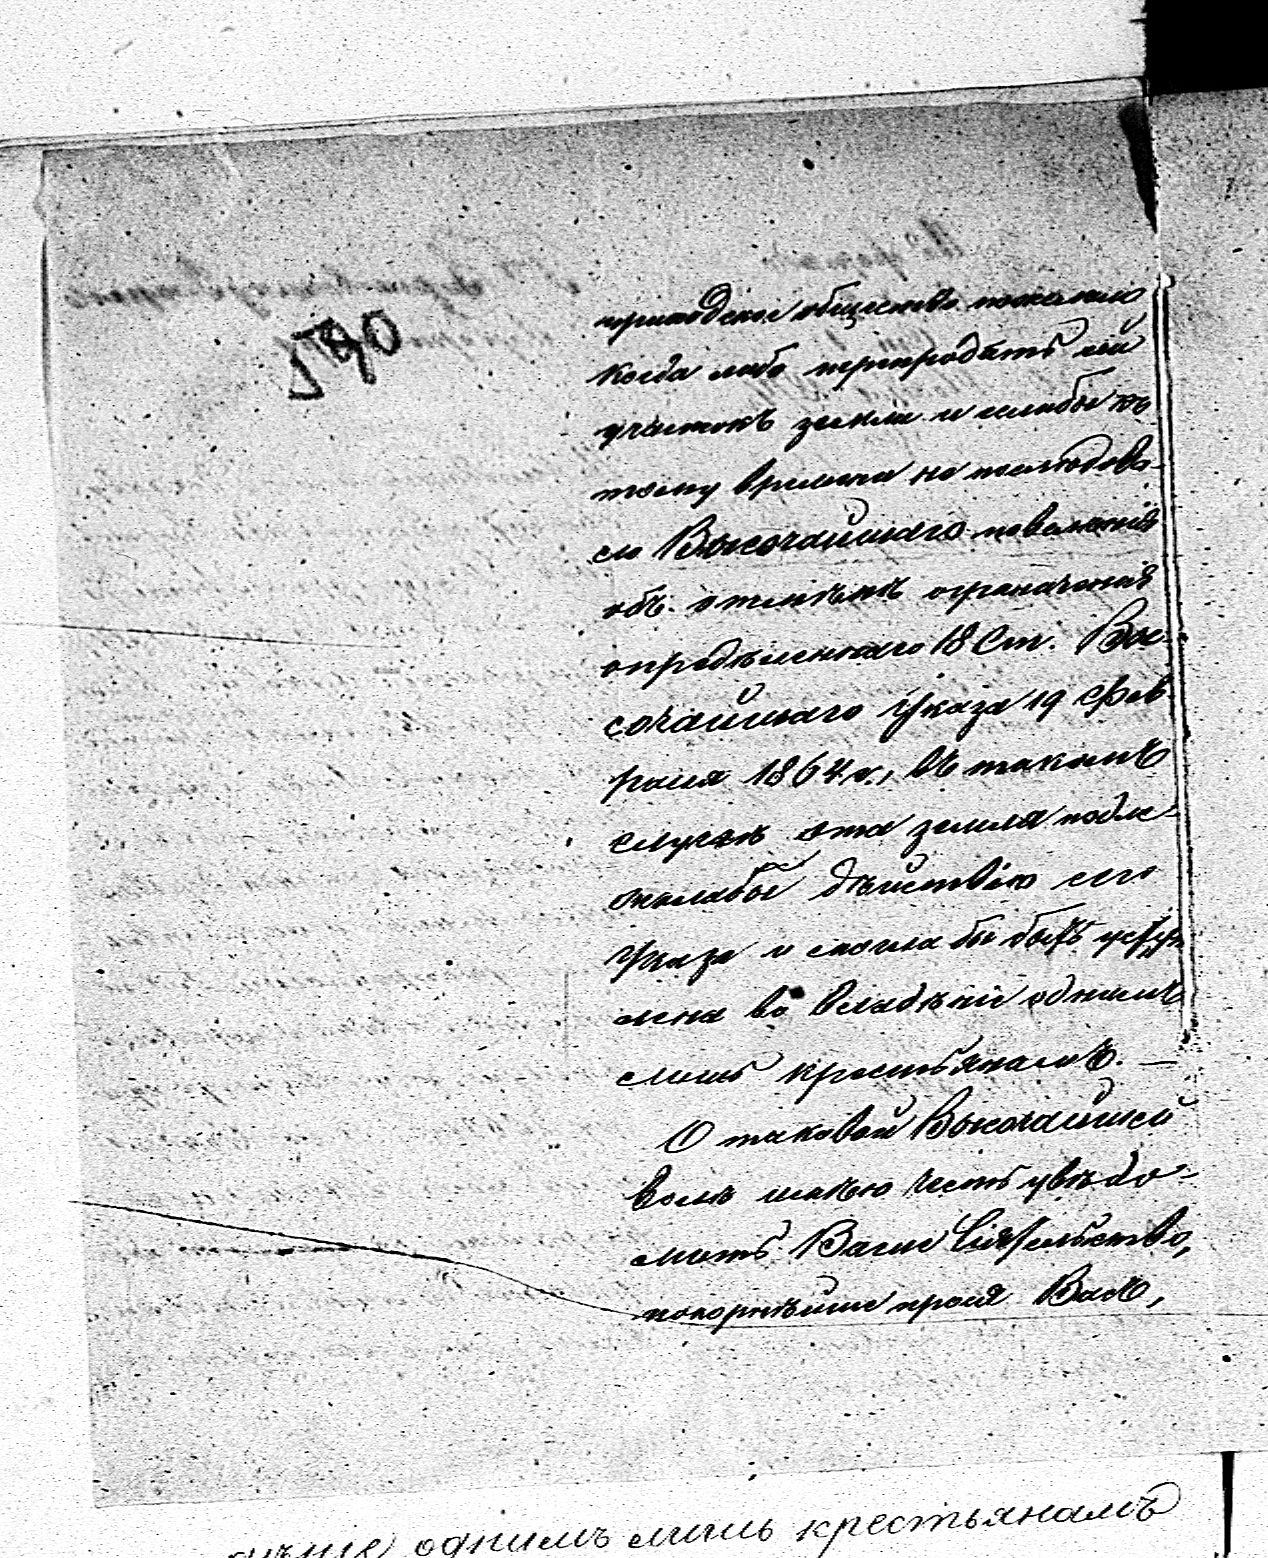 городское общество пожелало
когда либо перепродать сей
участокъ земли и еслибы къ
тому времени не последова-
ло Высочайшаго повеленія
объ отмѣнѣ ограниченія
опредѣленнаго 18 Ст. Вы-
сочайшаго Указа 19 Фев-
раля 1864 г., въ такомъ
случаѣ эта земля подле-
жалабы дѣйствію сего
Указа и могла бы быть уступ
лена во владѣніе однимъ
лишь крестьянамъ. —
О таковой Высочайшей
волѣ имѣю честь увѣдо-
мить Ваше Сіятельство,
покорнѣйше прося Васъ,
однимъ лишь крестьянамъ